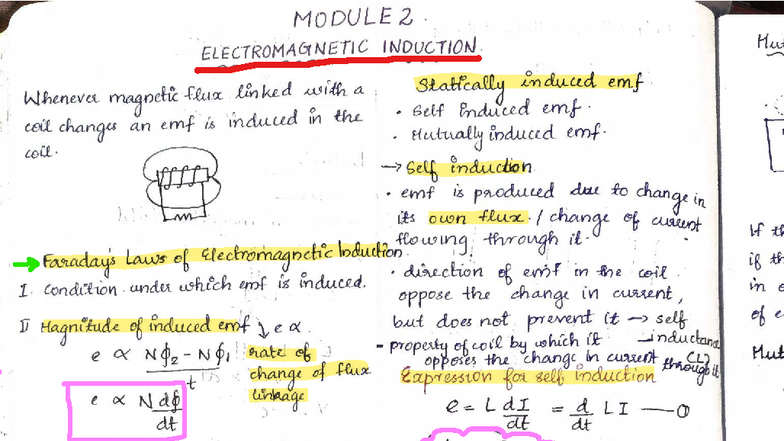 MODULE 2.
ELECTROMAGNETIC INDUCTION
Whenever magnetic flux linked with a
coil changes an emf is induced in the
coil.
Faraday's Laws of Electromagnetic Induction
I. Condition under which emf is induced.
II Magnitude of induced emf ↳ e ∝
e ∝ Nϕ2 - Nϕ1 / t
rate of
change of flux
linkage
e ∝ N dϕ/dt
Statically induced emf
• Self induced emf.
• Mutually induced emf.
→ Self induction
• emf is produced due to change in
its own flux / change of current
flowing through it.
• direction of emf in the coil
oppose the change in current,
but does not prevent it → self
- property of coil by which it → inductanc
opposes the change in current through it (L)
Expression for self induction
e = L dI/dt = d/dt LI —①
Mu
If th
if th
in
of e
Mut